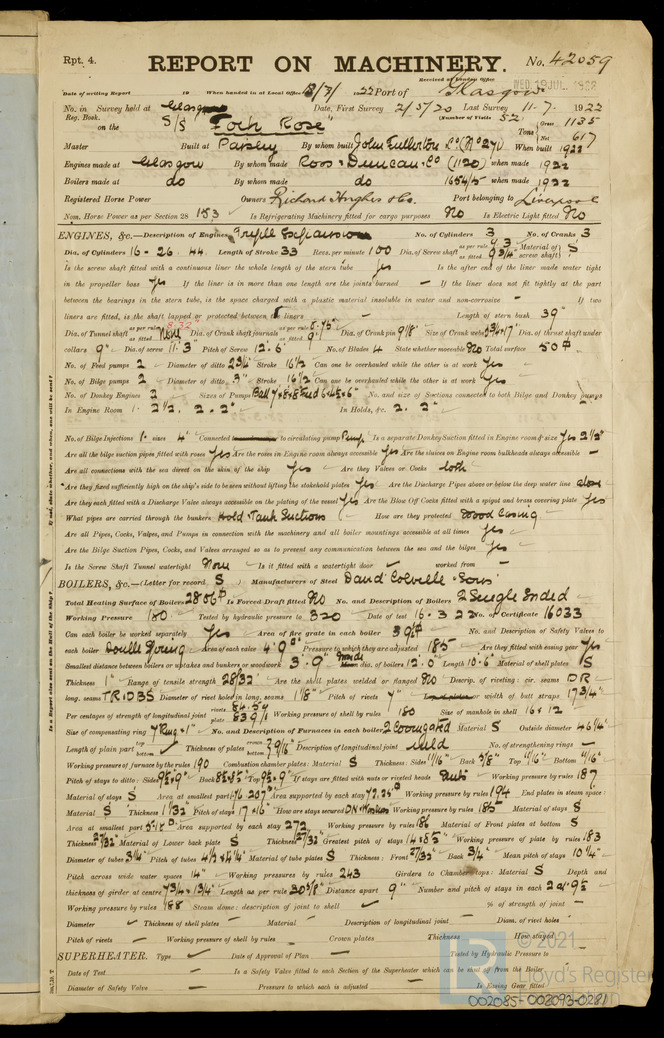 Rpt. 4.
REPORT ON MACHINERY. No. 42059
Received at London Office WED. 19 JUL. 1922
Date of writing Report 19 When handed in at Local Office 1922 Port of Glasgow
No. in Survey held at Glasgow Date, First Survey 2/5/20 Last Survey 11-7- 1922
Reg. Book. (Number of Visits 52)
on the S/S "Foch Rose" Tons Gross 1135 Net 617
Master Built at Paisley By whom built John Fullerton & Co (No 271) When built 1922
Engines made at Glasgow By whom made Ross & Duncan & Co (1120) when made 1922
Boilers made at do By whom made do 1654/5 when made 1922
Registered Horse Power Owners Richard Hughes & Co. Port belonging to Liverpool
Nom. Horse Power as per Section 28 153 Is Refrigerating Machinery fitted for cargo purposes No Is Electric Light fitted No
ENGINES, &c.—Description of Engines Triple Expansion No. of Cylinders 3 No. of Cranks 3
Dia. of Cylinders 16 - 26 - 44 Length of Stroke 33 Revs. per minute 100 Dia. of Screw shaft as per rule 9.3 as fitted 9 3/4" Material of screw shaft S
Is the screw shaft fitted with a continuous liner the whole length of the stern tube Yes Is the after end of the liner made water tight
in the propeller boss Yes If the liner is in more than one length are the joints burned — If the liner does not fit tightly at the part
between the bearings in the stern tube, is the space charged with a plastic material insoluble in water and non-corrosive — If two
liners are fitted, is the shaft lapped or protected between the liners — Length of stern bush 39"
Dia. of Tunnel shaft as per rule 8.32" as fitted None Dia. of Crank shaft journals as per rule 8.75" as fitted 9" Dia. of Crank pin 9 1/8" Size of Crank webs Dia. of thrust shaft under
collars 9" Dia. of screw 11'.3" Pitch of Screw 12'.6" No. of Blades 4 State whether moveable No Total surface 50 ft
No. of Feed pumps 2 Diameter of ditto 2 3/4" Stroke 16 1/2 Can one be overhauled while the other is at work Yes
No. of Bilge pumps 2 Diameter of ditto 3" Stroke 16 1/2 Can one be overhauled while the other is at work Yes
No. of Donkey Engines 2 Sizes of Pumps Ball 7x8x8 Feed 6x4½x6" No. and size of Suctions connected to both Bilge and Donkey pumps
In Engine Room 1 - 2 1/2, 2 - 2" In Holds, &c. 2 - 2"
No. of Bilge Injections 1 - sizes 4" Connected to circulating pump Pump Is a separate Donkey Suction fitted in Engine room & size Yes 2 1/2"
Are all the bilge suction pipes fitted with roses Yes Are the roses in Engine room always accessible Yes Are the sluices on Engine room bulkheads always accessible —
Are all connections with the sea direct on the skin of the ship Yes Are they Valves or Cocks both
Are they fixed sufficiently high on the ship's side to be seen without lifting the stokehold plates Yes Are the Discharge Pipes above or below the deep water line above
Are they each fitted with a Discharge Valve always accessible on the plating of the vessel Yes Are the Blow Off Cocks fitted with a spigot and brass covering plate Yes
What pipes are carried through the bunkers Hold Tank Suctions How are they protected Wood Casing
Are all Pipes, Cocks, Valves, and Pumps in connection with the machinery and all boiler mountings accessible at all times Yes
Are the Bilge Suction Pipes, Cocks, and Valves arranged so as to prevent any communication between the sea and the bilges Yes
Is the Screw Shaft Tunnel watertight None Is it fitted with a watertight door worked from —
BOILERS, &c.—(Letter for record S) Manufacturers of Steel David Colville & Sons
Total Heating Surface of Boilers 2806 ft Is Forced Draft fitted No No. and Description of Boilers 2 Single Ended
Working Pressure 180 Tested by hydraulic pressure to 320 Date of test 16 - 3 - 22 No. of Certificate 16033
Can each boiler be worked separately Yes Area of fire grate in each boiler 39 ft No. and Description of Safety Valves to
each boiler Double Spring Area of each valve 4".9 Pressure to which they are adjusted 185 Are they fitted with easing gear Yes
Smallest distance between boilers or uptakes and bunkers or woodwork 3'.9" Inside dia. of boilers 12'.0" Length 10'.6" Material of shell plates S
Thickness 1" Range of tensile strength 28/32 Are the shell plates welded or flanged No Descrip. of riveting: cir. seams D R
long. seams T R D B S Diameter of rivet holes in long. seams 1 1/8" Pitch of rivets 7" width of butt straps 17 3/4"
Per centages of strength of longitudinal joint rivets 84.54 plate 83.9 Working pressure of shell by rules 180 Size of manhole in shell 16 x 12
Size of compensating ring 7 Ring x 1" No. and Description of Furnaces in each boiler 2 Corrugated Material S Outside diameter 46 1/4"
Length of plain part top bottom Thickness of plates crown bottom 9/16" Description of longitudinal joint weld No. of strengthening rings —
Working pressure of furnace by the rules 190 Combustion chamber plates: Material S Thickness: Sides 11/16" Back 5/8" Top 11/16" Bottom 11/16"
Pitch of stays to ditto: Sides 9½x9" Back Top 9½x9" If stays are fitted with nuts or riveted heads Nuts Working pressure by rules 187
Material of stays S Area at smallest part Area supported by each stay Working pressure by rules 194 End plates in steam space:
Material S Thickness 1 1/32" Pitch of stays 17 x 16" How are stays secured D N & Washers Working pressure by rules 185 Material of stays S
Area at smallest part Area supported by each stay 272 Working pressure by rules 186 Material of Front plates at bottom S
Thickness 27/32" Material of Lower back plate S Thickness 27/32" Greatest pitch of stays 14 x 8 5/8" Working pressure of plate by rules 183
Diameter of tubes 3 1/4" Pitch of tubes 4½ x 4¼" Material of tube plates S Thickness: Front 27/32" Back 3/4" Mean pitch of stays 10 1/4"
Pitch across wide water spaces 14" Working pressures by rules 243 Girders to Chamber tops: Material S Depth and
thickness of girder at centre 7 3/4 x 1 3/4" Length as per rule 30 5/8" Distance apart 9" Number and pitch of stays in each 2 at 9½
Working pressure by rules 188 Steam dome: description of joint to shell % of strength of joint —
Diameter Thickness of shell plates — Material — Description of longitudinal joint — Diam. of rivet holes —
Pitch of rivets — Working pressure of shell by rules — Crown plates Thickness How stayed
SUPERHEATER. Type Date of Approval of Plan — Tested by Hydraulic Pressure to
Date of Test Is a Safety Valve fitted to each Section of the Superheater which can be shut off from the Boiler
Diameter of Safety Valve — Pressure to which each is adjusted Is Easing Gear fitted
© 2021
Lloyd's Register
Foundation
002085-002093-0281